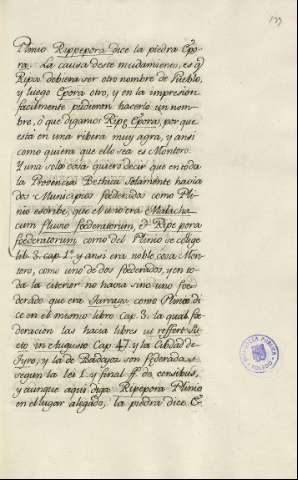 Plinio Rippepora dice la piedra Epo-
ra. La causa deste mudamiento, es q̃
Ripa debiera ser otro nombre de Pueblo,
y luego Epora otro, y en la impresion
facilmente pudieron hacerlo un nom-
bre, o que digamos Ripa Epora, por que
esta en una ribera muy agra, y ansi
como quiera que ello sea es Montoro.
Y una sola cosa quiero decir que en toda
la Provincia Bethica solamente havia
dos Municipios foederados como Pli-
nio escribe, que el uno era Malacha
cum fluvio foederatorum, et Ripe pora
foederatorum como del Plinio se colige
lib. 3. cap. 1. y ansi era noble cosa Mon-
toro, como uno de dos foederados, y en to-
da la citerior no havia sino uno foe-
derado que era Tarraga, como Plinio di-
ce en el mismo libro Cap. 3. la qual foe-
deracion las hacia libres ut refert Sue-
to, in Augusto Cap. 47. y la Cibdad de
Tyro, y la de Badajoz son federadas
segun la lei 1. y final ff. de censibus,
y aunque aqui diga Ripepora Plinio
en el lugar alegado, la piedra dice E-
BIBLIOTECA PUBLICA
TOLEDO